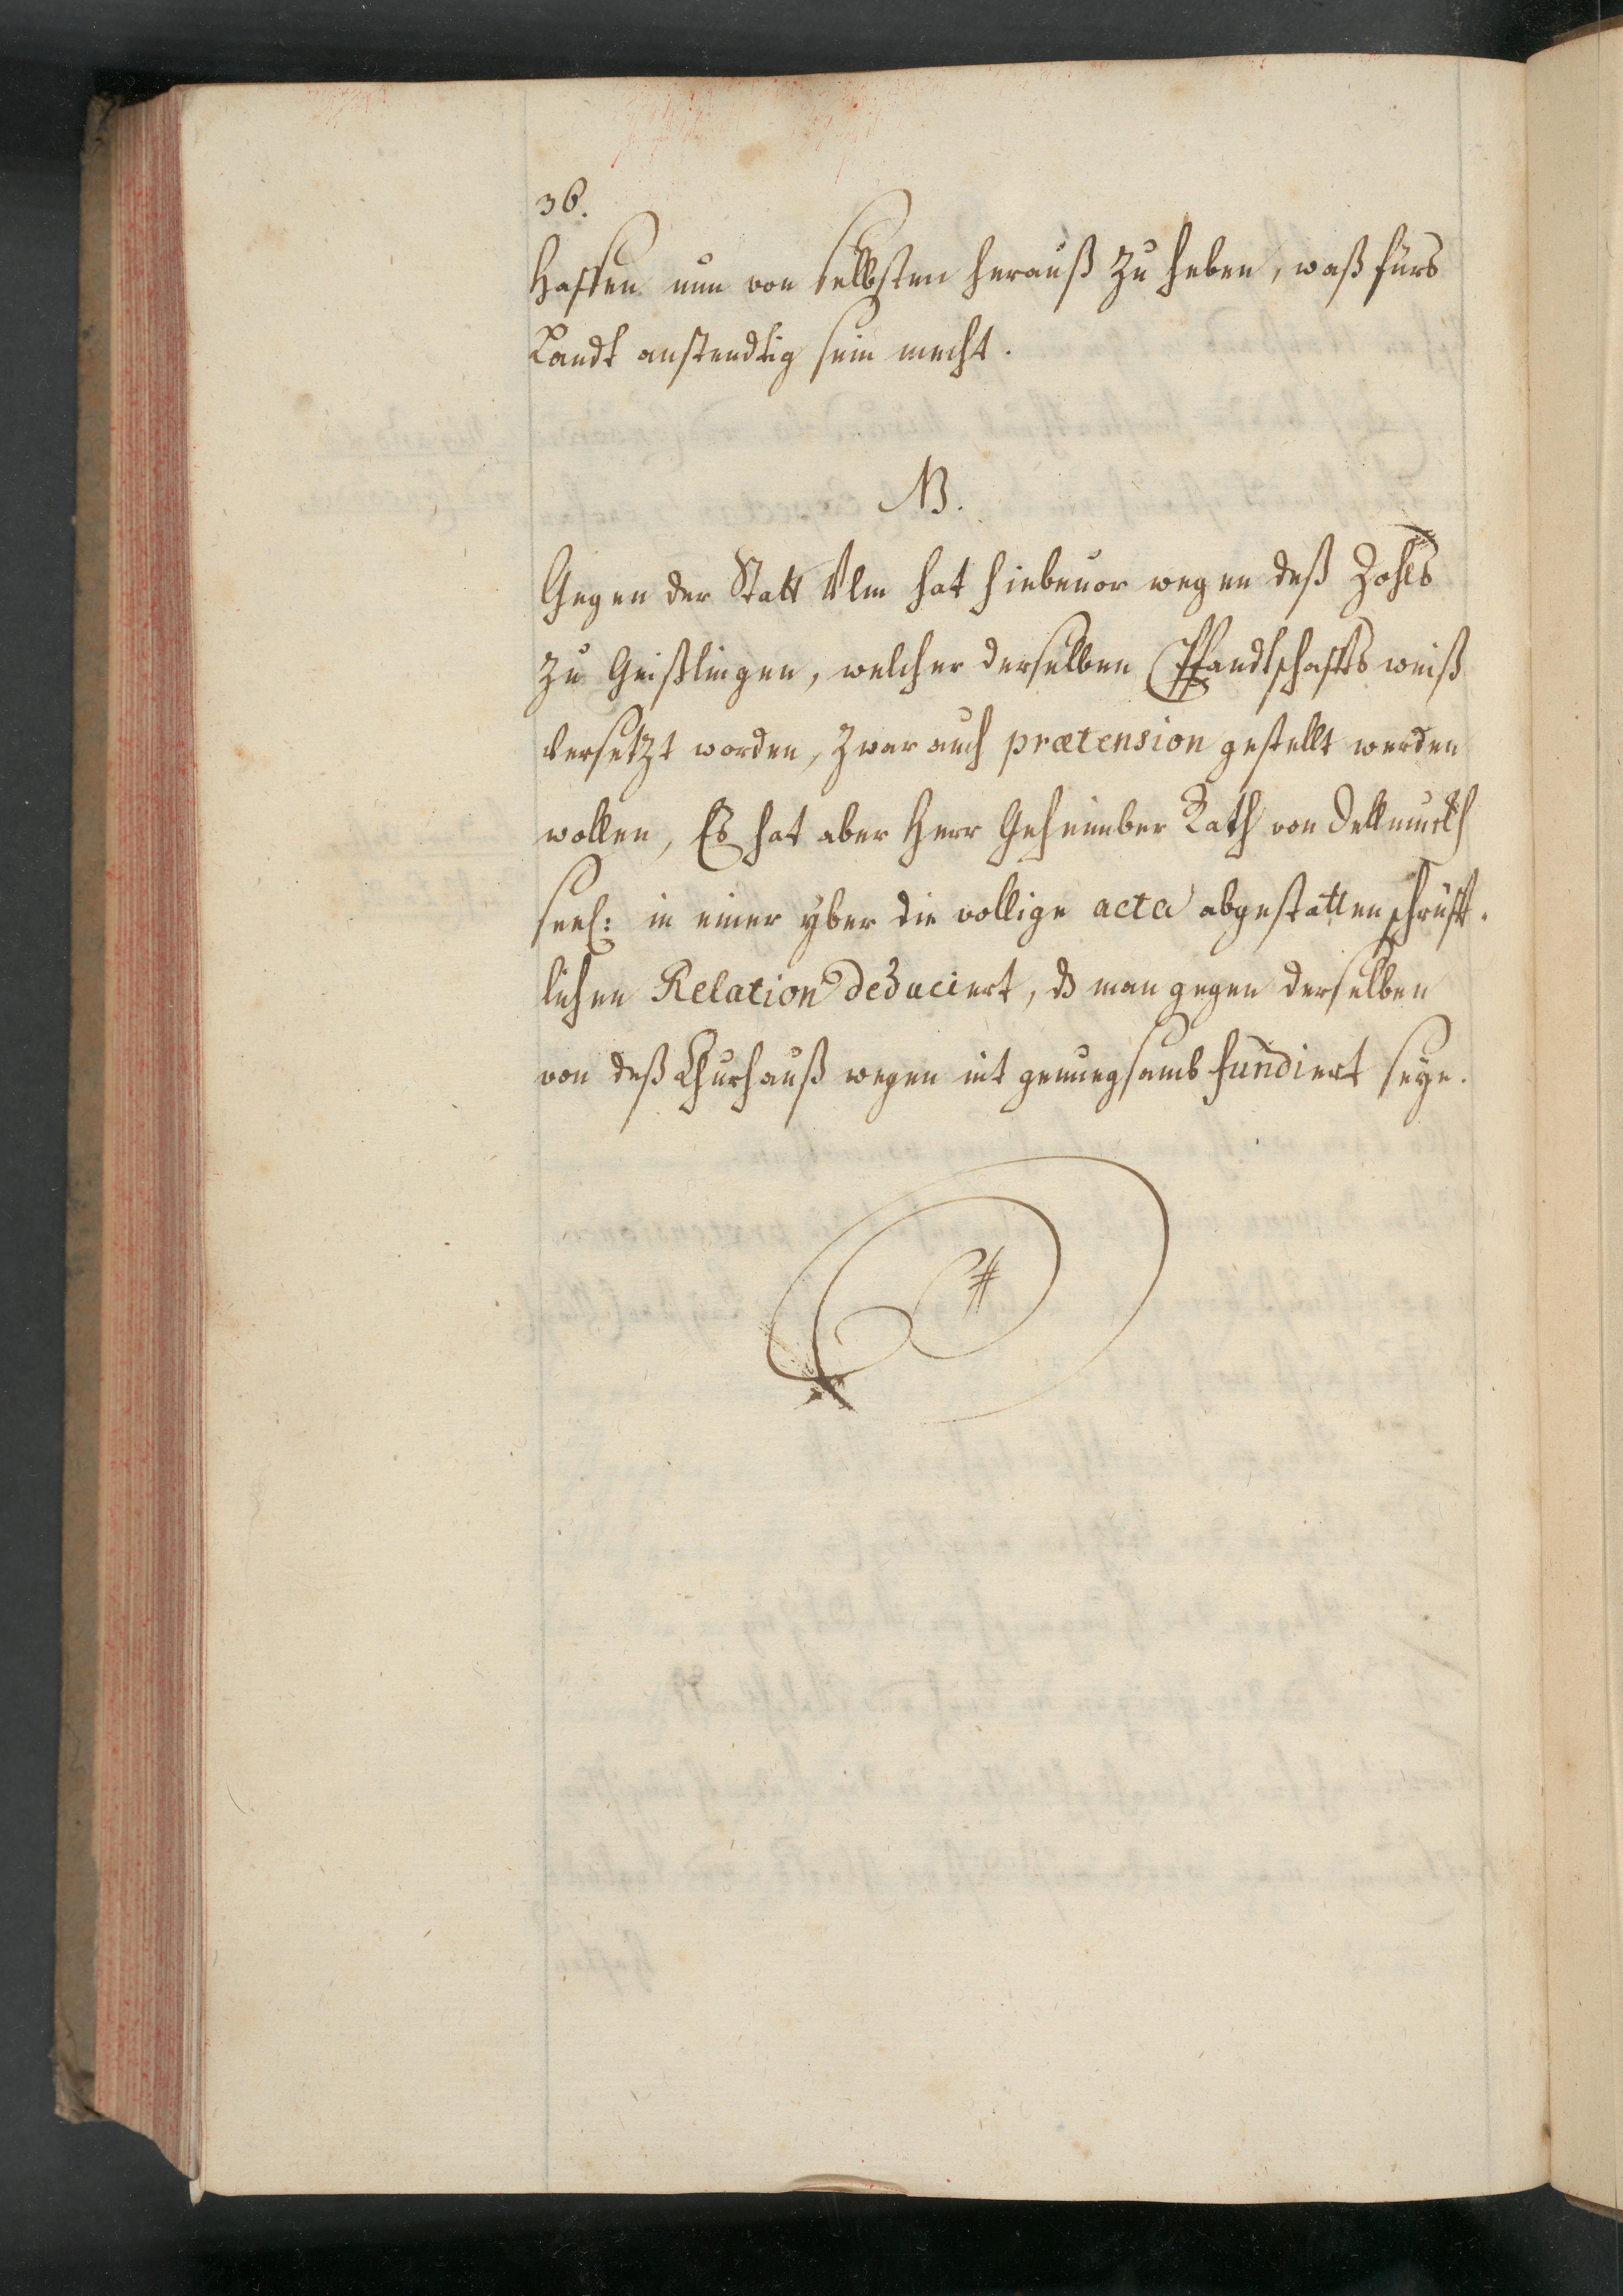 36.
hafften nun von selbsten herauß zu heben, waß fürs
Landt anstendtig sein mecht.
NB.
Gegen der Statt Ulm hat hiebeuor wegen deß Zohls
zu Geißlingen, welcher derselben Pfandtschaffts weiß
versetzt worden, zwar auch prætension gestellt werden
wollen, Es hat aber Herr Geheimber Rath von Dellmuckh
seel: in einer yber die vollige acta abgestatten schrüfft-
lichen Relation deduciert, ds man gegen derselben
von deß Churhauß wegen nit genuegsamb fundiert seye.